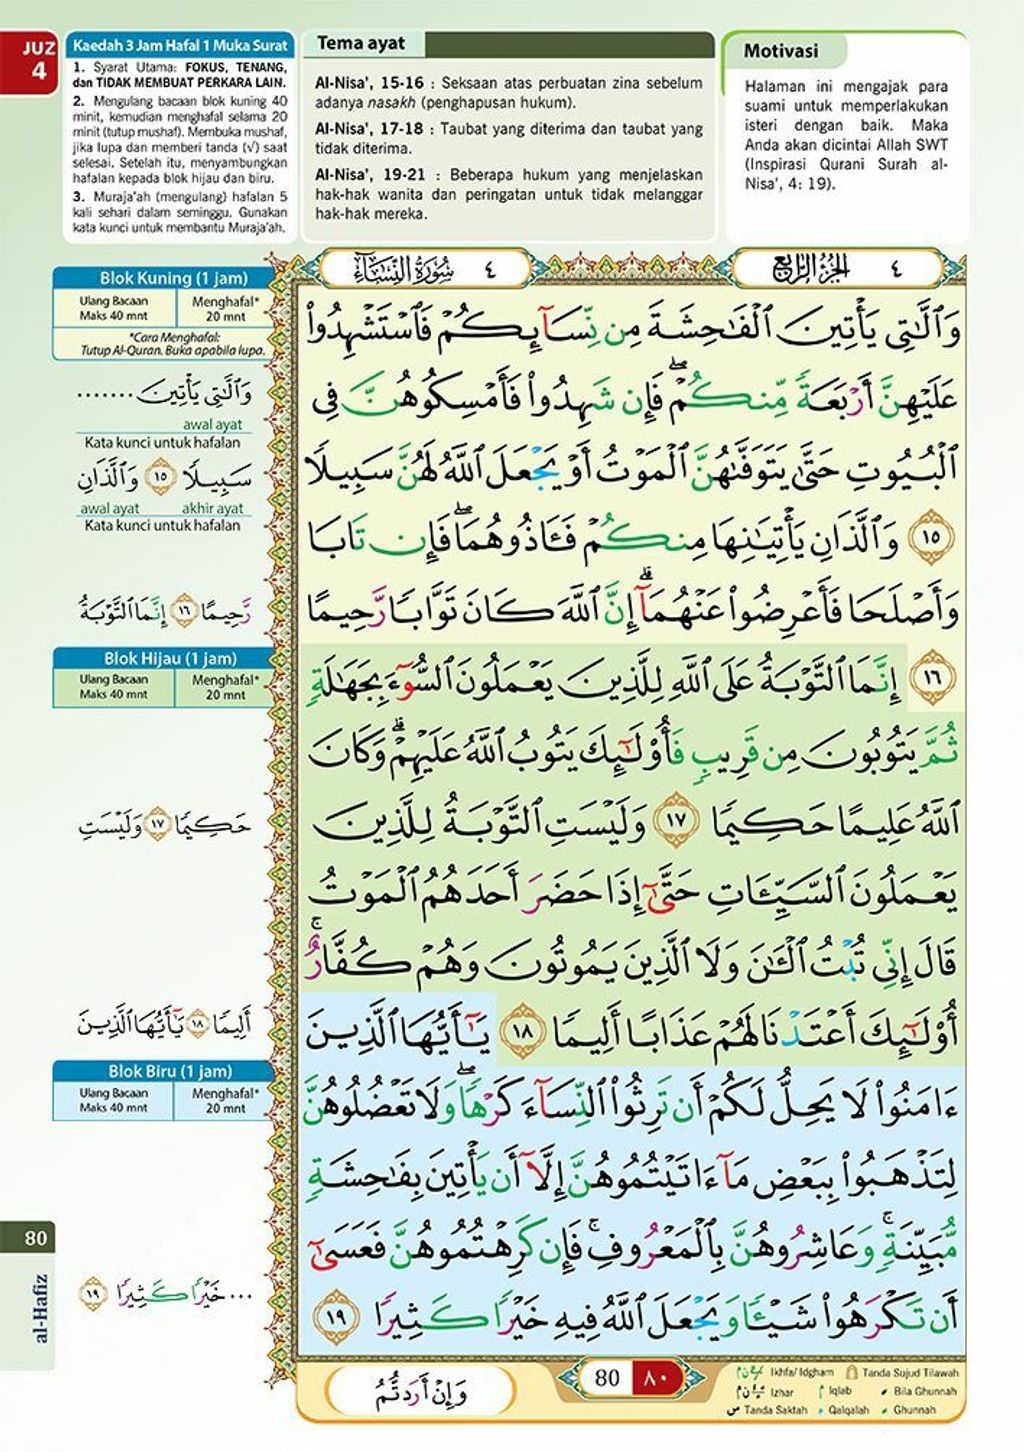 JUZ
4
Kaedah 3 Jam Hafal 1 Muka Surat
1. Syarat Utama: FOKUS, TENANG,
dan TIDAK MEMBUAT PERKARA LAIN.
2. Mengulang bacaan blok kuning 40
minit, kemudian menghafal selama 20
minit (tutup mushaf). Membuka mushaf,
jika lupa dan memberi tanda (√) saat
selesai. Setelah itu, menyambungkan
hafalan kepada blok hijau dan biru.
3. Muraja'ah (mengulang) hafalan 5
kali sehari dalam seminggu. Gunakan
kata kunci untuk membantu Muraja'ah.
Tema ayat
Al-Nisa', 15-16 : Seksaan atas perbuatan zina sebelum
adanya nasakh (penghapusan hukum).
Al-Nisa', 17-18 : Taubat yang diterima dan taubat yang
tidak diterima.
Al-Nisa', 19-21 : Beberapa hukum yang menjelaskan
hak-hak wanita dan peringatan untuk tidak melanggar
hak-hak mereka.
Motivasi
Halaman ini mengajak para
suami untuk memperlakukan
isteri dengan baik. Maka
Anda akan dicintai Allah SWT
(Inspirasi Qurani Surah al-
Nisa', 4: 19).
٤ الجزء الرابع
٤ سورة النساء
وَٱلَّٰتِى يَأْتِينَ ٱلْفَٰحِشَةَ مِن نِّسَآئِكُمْ فَٱسْتَشْهِدُوا۟
عَلَيْهِنَّ أَرْبَعَةً مِّنكُمْ ۖ فَإِن شَهِدُوا۟ فَأَمْسِكُوهُنَّ فِى
ٱلْبُيُوتِ حَتَّىٰ يَتَوَفَّىٰهُنَّ ٱلْمَوْتُ أَوْ يَجْعَلَ ٱللَّهُ لَهُنَّ سَبِيلًا
١٥ وَٱلَّذَانِ يَأْتِيَٰنِهَا مِنكُمْ فَـَٔاذُوهُمَا ۖ فَإِن تَابَا
وَأَصْلَحَا فَأَعْرِضُوا۟ عَنْهُمَآ ۗ إِنَّ ٱللَّهَ كَانَ تَوَّابًا رَّحِيمًا
١٦ إِنَّمَا ٱلتَّوْبَةُ عَلَى ٱللَّهِ لِلَّذِينَ يَعْمَلُونَ ٱلسُّوٓءَ بِجَهَٰلَةٍ
ثُمَّ يَتُوبُونَ مِن قَرِيبٍ فَأُو۟لَٰٓئِكَ يَتُوبُ ٱللَّهُ عَلَيْهِمْ ۗ وَكَانَ
ٱللَّهُ عَلِيمًا حَكِيمًا ١٧ وَلَيْسَتِ ٱلتَّوْبَةُ لِلَّذِينَ
يَعْمَلُونَ ٱلسَّيِّـَٔاتِ حَتَّىٰٓ إِذَا حَضَرَ أَحَدَهُمُ ٱلْمَوْتُ
قَالَ إِنِّى تُبْتُ ٱلْـَٰٔنَ وَلَا ٱلَّذِينَ يَمُوتُونَ وَهُمْ كُفَّارٌ ۚ
أُو۟لَٰٓئِكَ أَعْتَدْنَا لَهُمْ عَذَابًا أَلِيمًا ١٨ يَٰٓأَيُّهَا ٱلَّذِينَ
ءَامَنُوا۟ لَا يَحِلُّ لَكُمْ أَن تَرِثُوا۟ ٱلنِّسَآءَ كَرْهًا ۖ وَلَا تَعْضُلُوهُنَّ
لِتَذْهَبُوا۟ بِبَعْضِ مَآ ءَاتَيْتُمُوهُنَّ إِلَّآ أَن يَأْتِينَ بِفَٰحِشَةٍ
مُّبَيِّنَةٍ ۚ وَعَاشِرُوهُنَّ بِٱلْمَعْرُوفِ ۚ فَإِن كَرِهْتُمُوهُنَّ فَعَسَىٰٓ
أَن تَكْرَهُوا۟ شَيْـًٔا وَيَجْعَلَ ٱللَّهُ فِيهِ خَيْرًا كَثِيرًا ١٩
Blok Kuning (1 jam)
Ulang Bacaan Menghafal*
Maks 40 mnt 20 mnt
*Cara Menghafal:
Tutup Al-Quran. Buka apabila lupa.
وَٱلَّٰتِى يَأْتِينَ .......
awal ayat
Kata kunci untuk hafalan
سَبِيلًا ١٥ وَٱلَّذَانِ
awal ayat akhir ayat
Kata kunci untuk hafalan
رَّحِيمًا ١٦ إِنَّمَا ٱلتَّوْبَةُ
Blok Hijau (1 jam)
Ulang Bacaan Menghafal*
Maks 40 mnt 20 mnt
حَكِيمًا ١٧ وَلَيْسَتِ
أَلِيمًا ١٨ يَٰٓأَيُّهَا ٱلَّذِينَ
Blok Biru (1 jam)
Ulang Bacaan Menghafal*
Maks 40 mnt 20 mnt
80
al-Hafiz
... خَيْرًا كَثِيرًا ١٩
وَإِنْ أَرَدتُّمُ
80 ٨٠
Ikhfa/ Idgham Tanda Sujud Tilawah
Izhar Iqlab Bila Ghunnah
Tanda Saktah Qalqalah Ghunnah